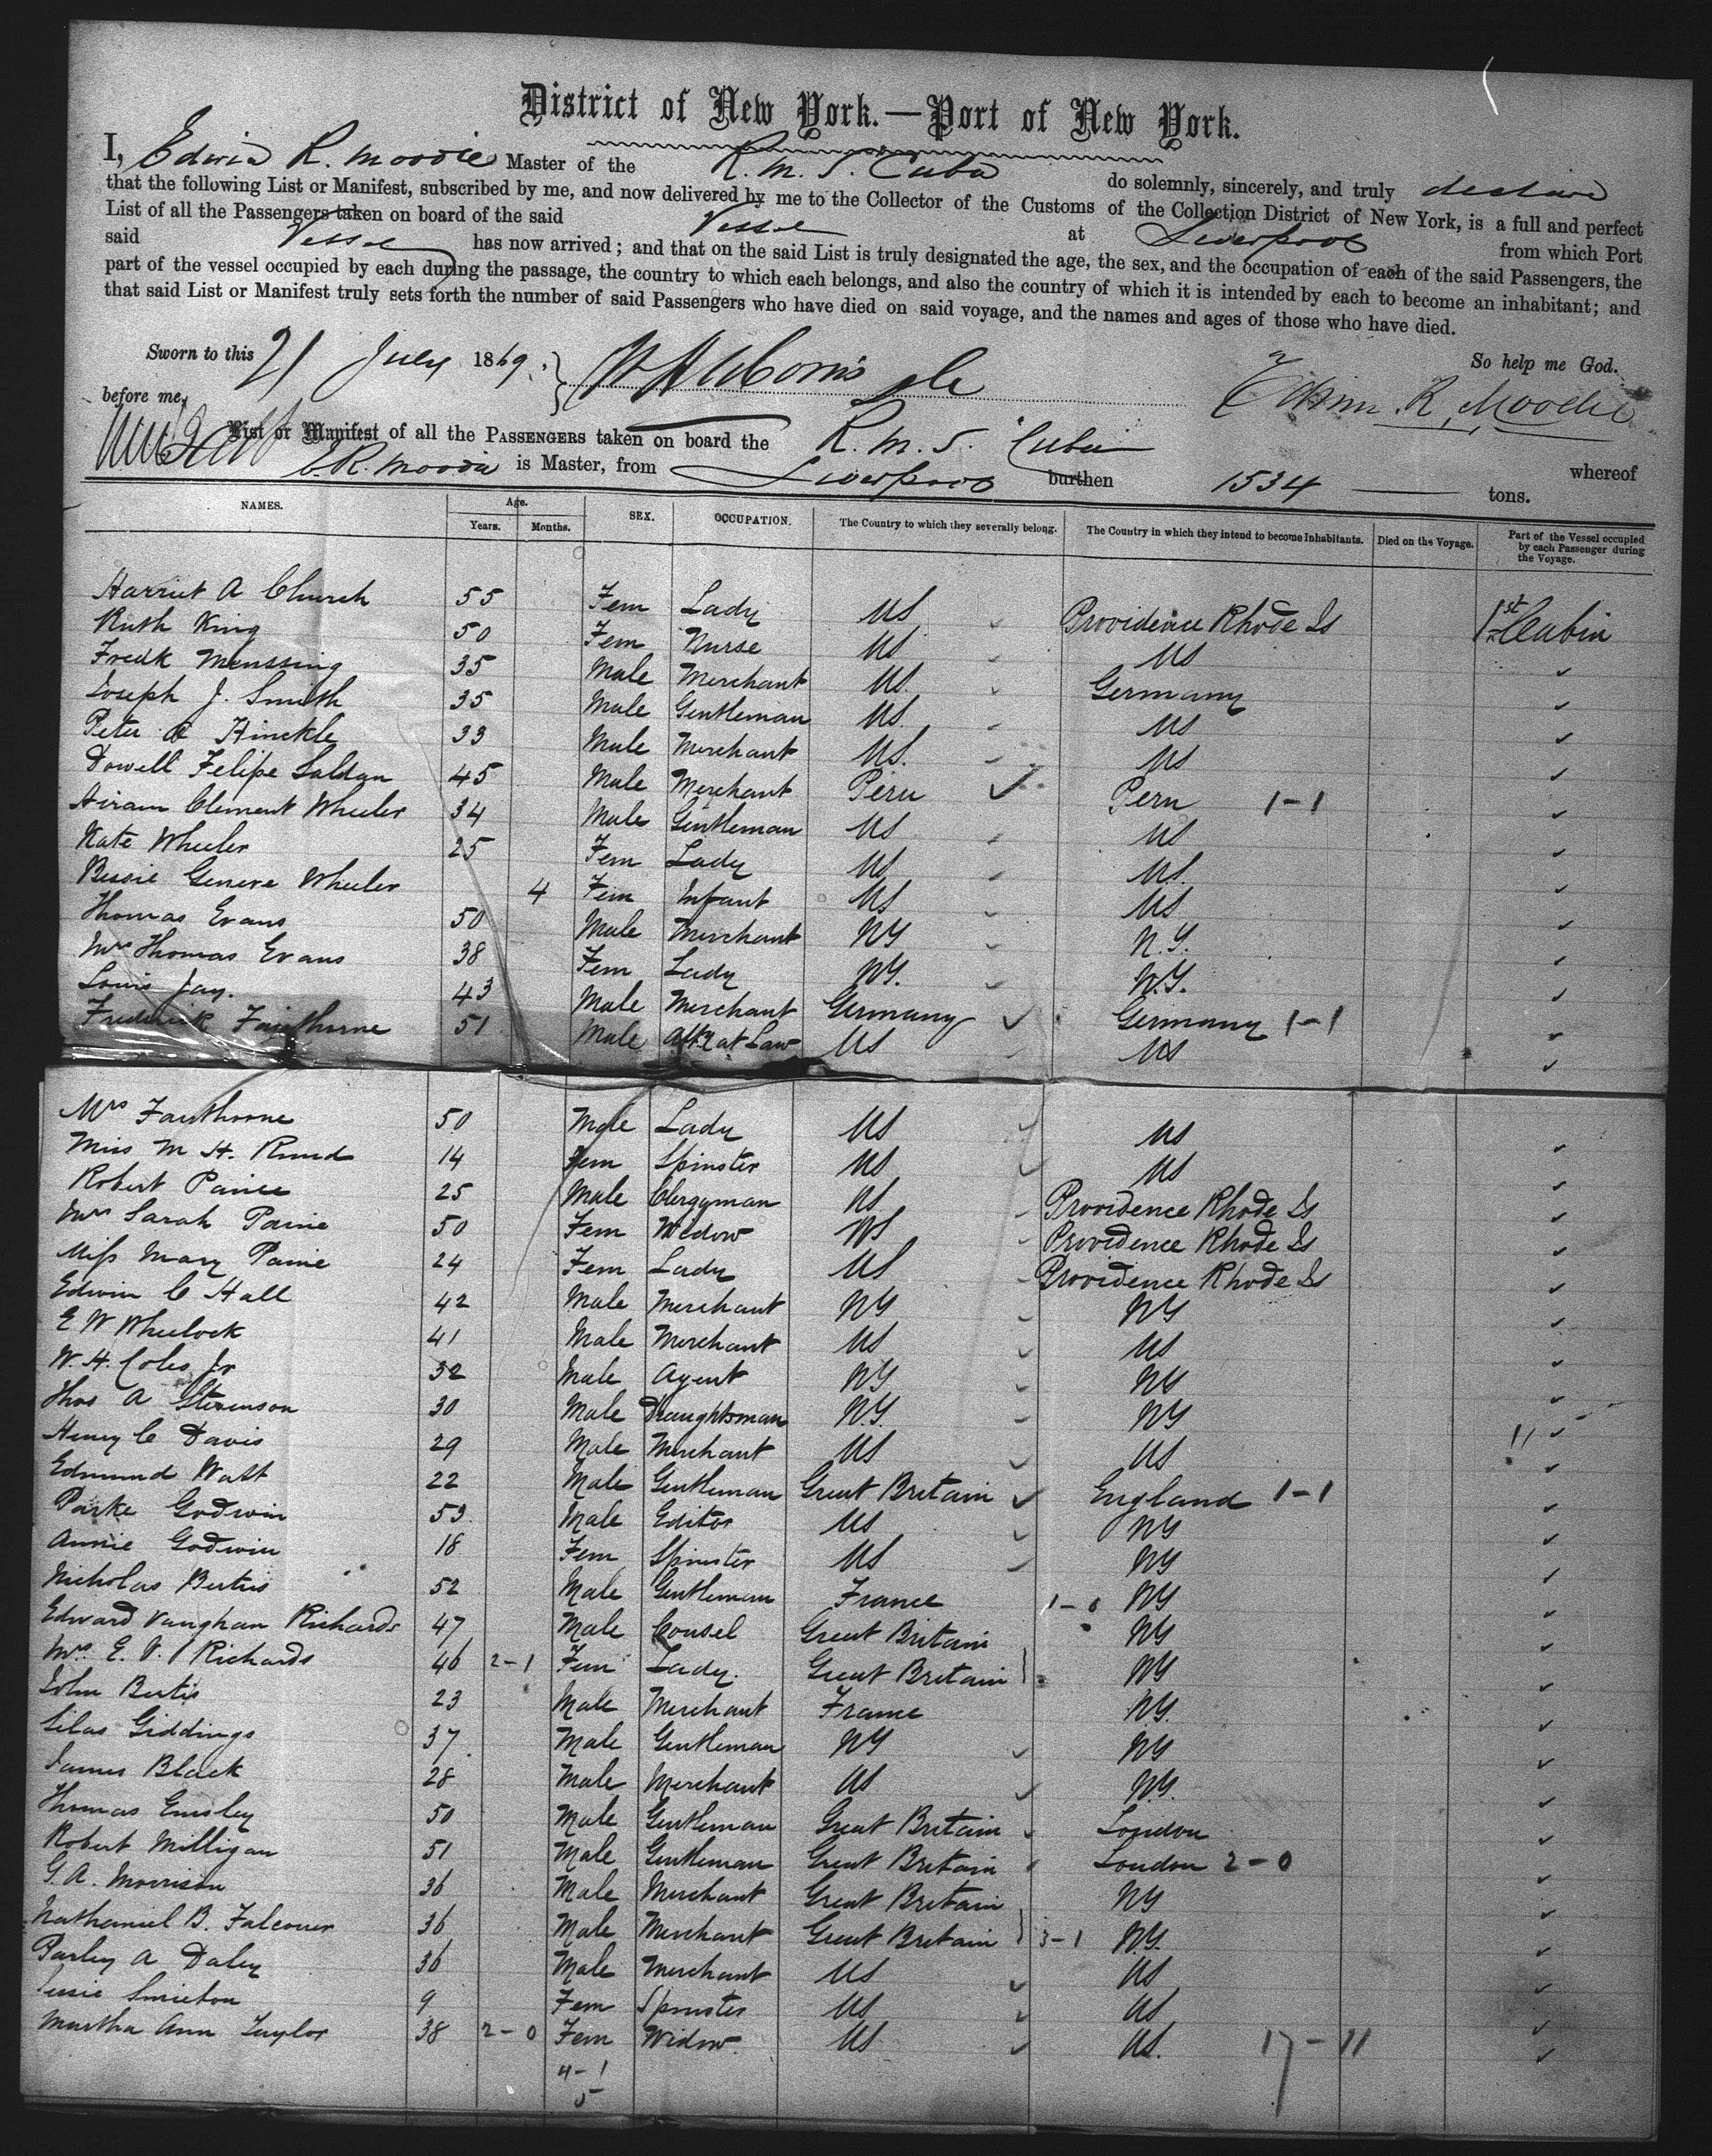 District of New York.—Port of New York.
I, Edwin R. Moodie Master of the R. M. S. Cuba do solemnly, sincerely, and truly declare
that the following List or Manifest, subscribed by me, and now delivered by me to the Collector of the Customs of the Collection District of New York, is a full and perfect
List of all the Passengers taken on board of the said Vessel at Liverpool from which Port
said Vessel has now arrived; and that on the said List is truly designated the age, the sex, and the occupation of each of the said Passengers, the
part of the vessel occupied by each during the passage, the country to which each belongs, and also the country of which it is intended by each to become an inhabitant; and
that said List or Manifest truly sets forth the number of said Passengers who have died on said voyage, and the names and ages of those who have died.
So help me God.
Sworn to this 21 July 1869
Edwin R. Moodie
before me,
List or Manifest of all the PASSENGERS taken on board the R. M. S. Cuba whereof
E. R. Moodie is Master, from Liverpool burthen 1534 tons.
NAMES. Age. Years. Months. SEX. OCCUPATION. The Country to which they severally belong. The Country in which they intend to become Inhabitants. Died on the Voyage. Part of the Vessel occupied by each Passenger during the Voyage.
Harriet A Church 55 Fem Lady US Providence Rhode Is 1st Cabin
Ruth King 50 Fem Nurse US US
Fredk Menssing 35 Male Merchant US. Germany
Joseph J. Smith 35 Male Gentleman US US
Peter A Hinckle 33 Male Merchant US. US
Dowell Felipe Saldan 45 Male Merchant Peru Peru 1-1
Hiram Clement Wheeler 34 Male Gentleman US US
Kate Wheeler 25 Fem Lady US US.
Bessie Geneva Wheeler 4 Fem Infant US US
Thomas Evans 50 Male Merchant NY N.Y.
Mrs Thomas Evans 38 Fem Lady NY. N.Y.
Louis Jay. 43 Male Merchant Germany Germany 1-1
Frederick Fawthorne 51 Male Atty at Law US US
Mrs Fawthorne 50 Male Lady US US
Miss M H. Rund 14 Fem Spinster US US
Robert Paine 25 Male Clergyman US Providence Rhode Is
Mrs Sarah Paine 50 Fem Widow US Providence Rhode Is
Miss Mary Paine 24 Fem Lady US Providence Rhode Is
Edwin C Hall 42 Male Merchant NY NY
E W Wheelock 41 Male Merchant US US
W. H. Coles Jr 32 Male Agent NY NY
Thos A Stevenson 30 Male Draughtsman N.Y. NY
Henry C Davis 29 Male Merchant US US 11
Edmund Watt 22 Male Gentleman Great Britain England 1-1
Parke Godwin 53 Male Editor US NY
Annie Godwin 18 Fem Spinster US NY
Nicholas Bertis 52 Male Gentleman France 1-0 NY
Edward Vaughan Richards 47 Male Consel Great Britain NY
Mrs E. V. Richards 46 2-1 Fem Lady. Great Britain NY
John Bertis 23 Male Merchant France NY.
Silas Giddings 37. Male Gentleman NY NY
James Black 28 Male Merchant US N.Y.
Thomas Emsley 50 Male Gentleman Great Britain London
Robert Milligan 51 Male Gentleman Great Britain London 2-0
G. A. Morrison 36 Male Merchant Great Britain NY
Nathaniel B. Falconer 36 Male Merchant Great Britain 3-1 N.Y.
Parley A Daley 36 Male Merchant US US
Susie Smieton 9 Fem Spinster US US
Martha Ann Taylor 38 2-0 Fem Widow. US US. 17-11
4-1
5